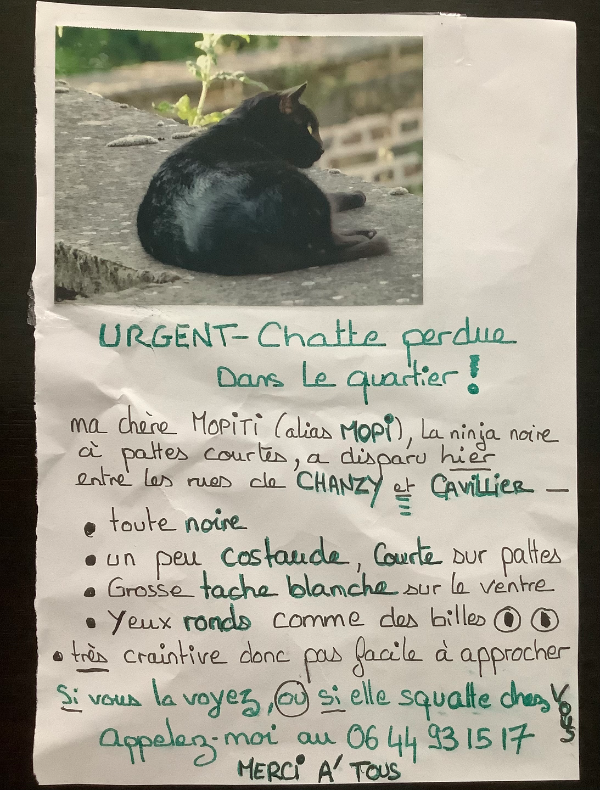 URGENT - Chatte perdue
Dans le quartier !
ma chère MOPiTi (alias MOPi), la ninja noire
à pattes courtes, a disparu hier
entre les rues de CHANZY et CAViLLiER —
• toute noire
• un peu costaude, Courte sur pattes
• Grosse tache blanche sur le ventre
• Yeux ronds comme des billes
• très craintive donc pas facile à approcher
Si vous la voyez, où si elle squatte chez VOUS
Appelez-moi au 06 44 93 15 17
MERCi A' TOUS